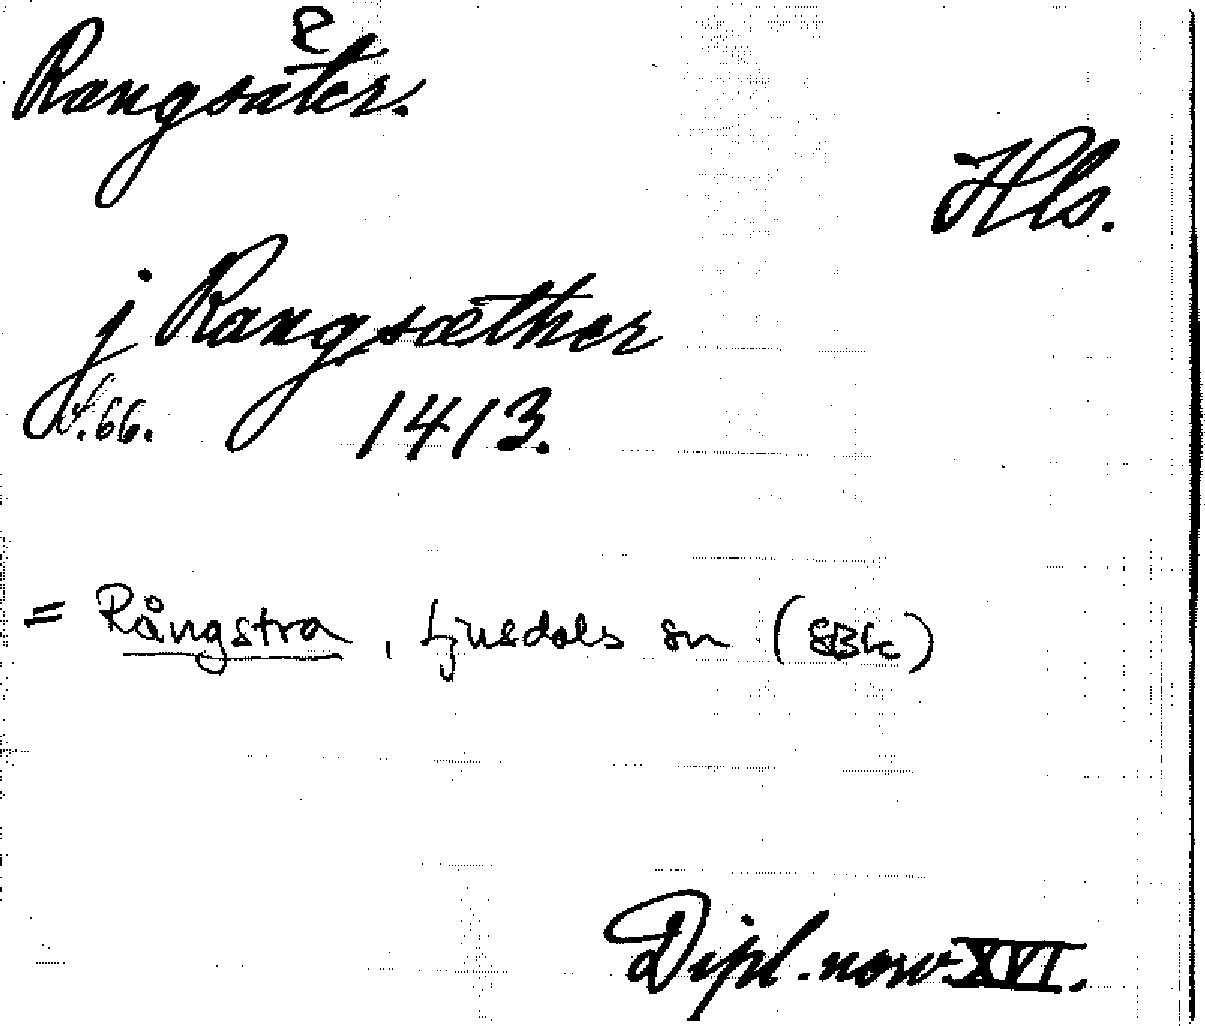 Rangsäter.
Hls.
j Rangsæther
s. 66. 1413.
= Rångstra, Ljusdals sn (SBk)
Dipl. norv. XVI.